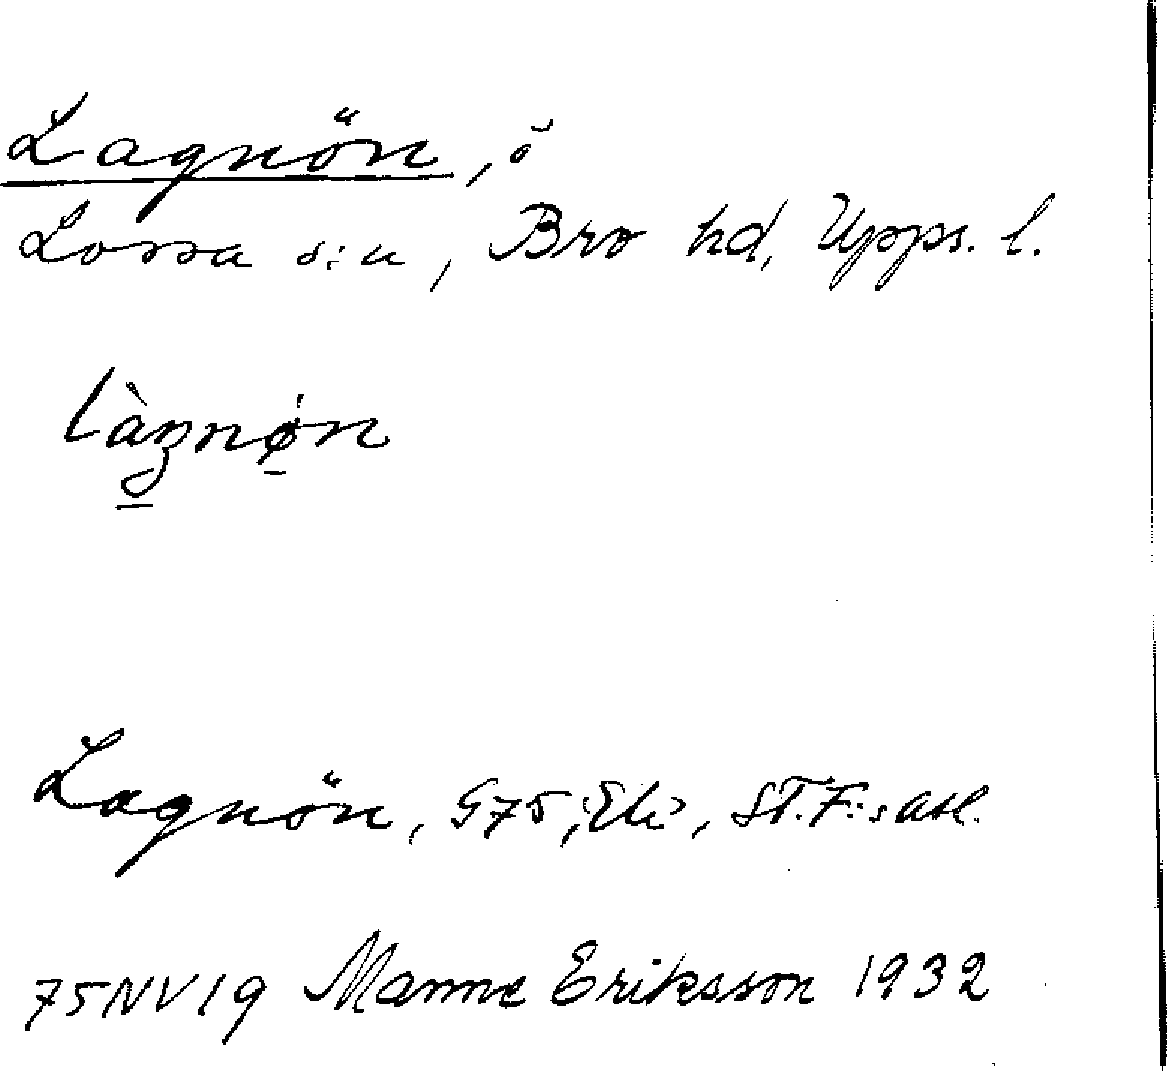 Lagnön, ö
Lossa s:n, Bro hd, Upps. l.
làgnø̀n
Lagnön, G75, Ek, ST.F:s atl.
75NV19 Manne Eriksson 1932